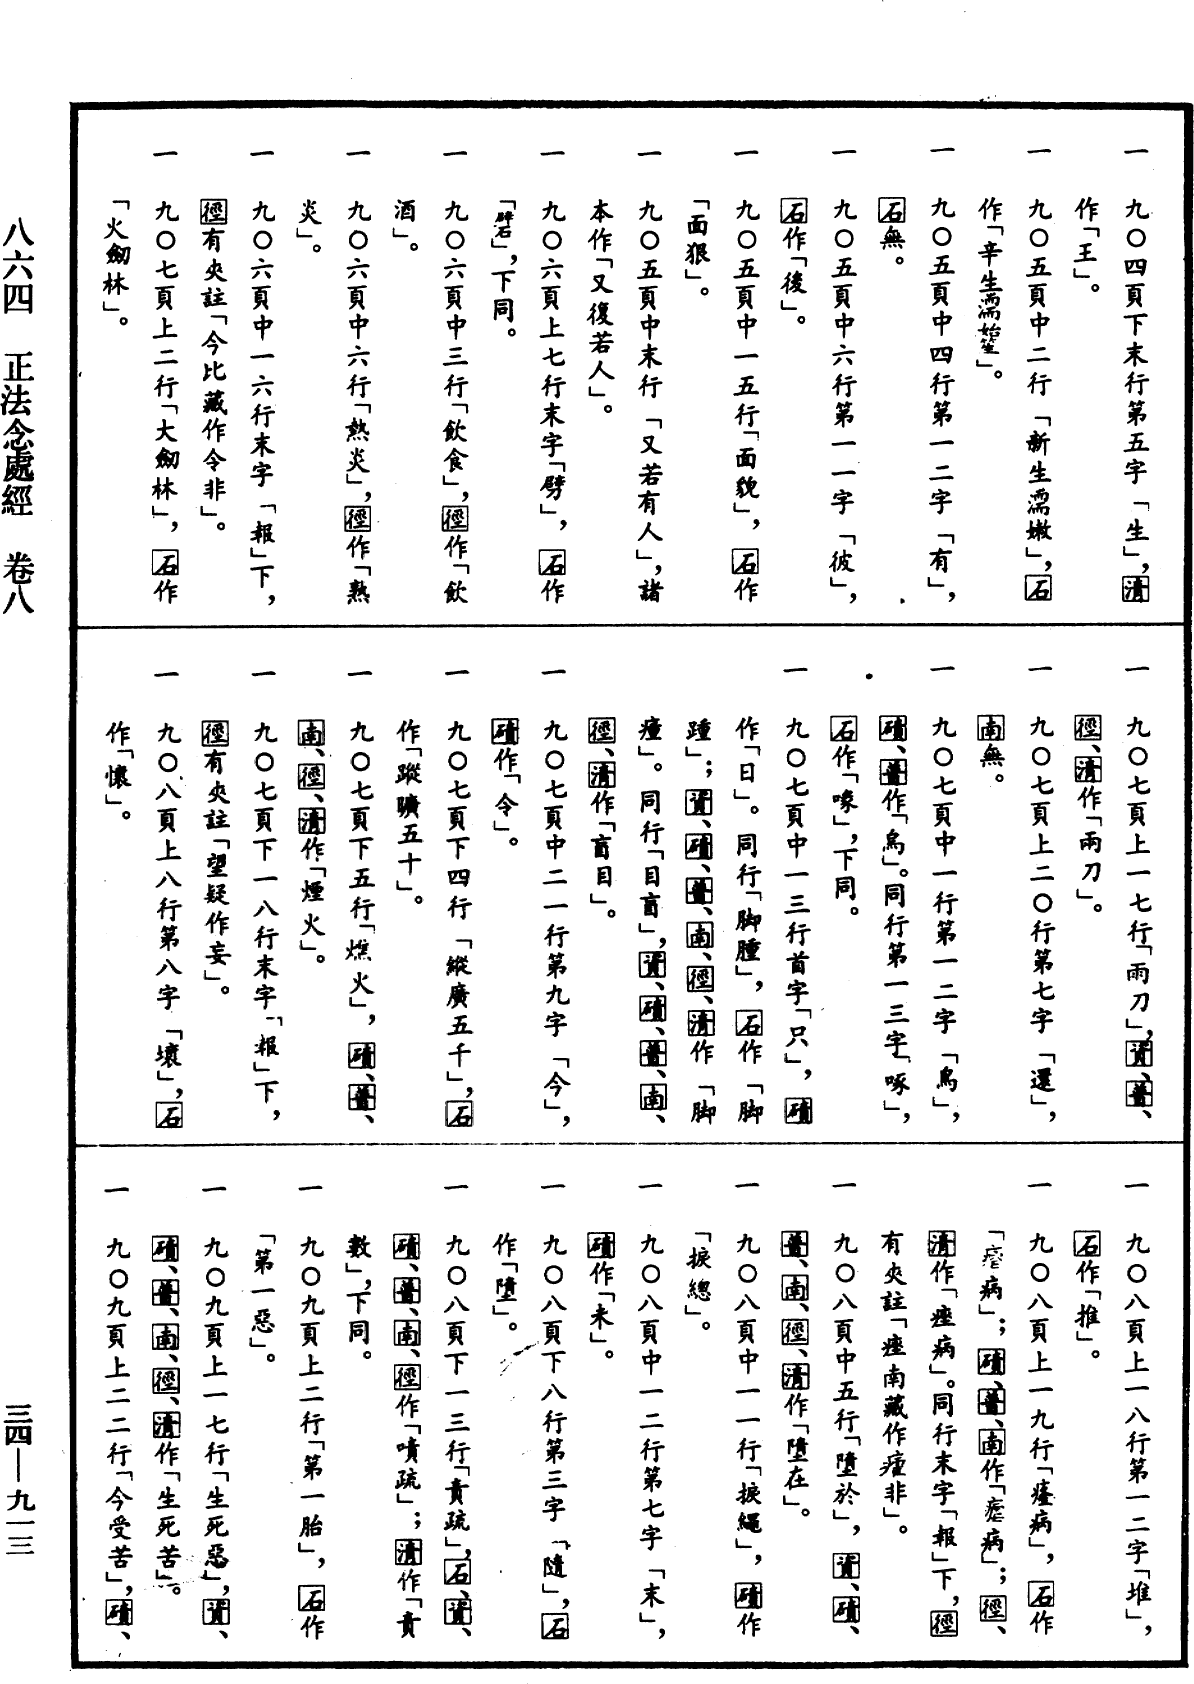 一　九〇四頁下末行第五字「生」，清
作「王」。
一　九〇五頁中二行「新生濡嫩」，石
作「辛生濡始𥫱」。
一　九〇五頁中四行第一二字「有」，
石無。
一　九〇五頁中六行第一一字「彼」，
石作「後」。
一　九〇五頁中一五行「面貌」，石作
「面狠」。
一　九〇五頁中末行「又若有人」，諸
本作「又復若人」。
一　九〇六頁上七行末字「劈」，石作
「礕」，下同。
一　九〇六頁中三行「飲食」，徑作「飲
酒」。
一　九〇六頁中六行「熱炎」，徑作「熟
炎」。
一　九〇六頁中一六行末字「報」下，
徑有夾註「今比藏作令非」。
一　九〇七頁上二行「大劒林」，石作
「火劒林」。
一　九〇七頁上一七行「雨刀」，資、普、
徑、清作「兩刀」。
一　九〇七頁上二〇行第七字「還」，
南無。
一　九〇七頁中一行第一二字「烏」，
磧、普作「鳥」。同行第一三字「啄」，
石作「喙」，下同。
一　九〇七頁中一三行首字「只」，磧
作「日」。同行「脚腫」，石作「脚
踵」；資、磧、普、南、徑、清作「脚
瘇」。同行「目盲」，資、磧、普、南、
徑、清作「盲目」。
一　九〇七頁中二一行第九字「今」，
磧作「令」。
一　九〇七頁下四行「縱廣五千」，石
作「蹤曠五十」。
一　九〇七頁下五行「燋火」，磧、普、
南、徑、清作「煙火」。
一　九〇七頁下一八行末字「報」下，
徑有夾註「望疑作妄」。
一　九〇八頁上八行第八字「壞」，石
作「懷」。
一　九〇八頁上一八行第一二字「堆」，
石作「推」。
一　九〇八頁上一九行「㾏病」，石作
「病」；磧、普、南作「病」；徑、
清作「痤病」。同行末字「報」下，徑
有夾註「痤南藏作瘇非」。
一　九〇八頁中五行「墮於」，資、磧、
普、南、徑、清作「墮在」。
一　九〇八頁中一一行「捩繩」，磧作
「捩總」。
一　九〇八頁中一二行第七字「末」，
磧作「未」。
一　九〇八頁下八行第三字「隨」，石
作「墮」。
一　九〇八頁下一三行「責疏」，石、資、
磧、普、南、徑作「嘖疏」；清作「責
數」，下同。
一　九〇九頁上二行「第一胎」，石作
「第一惡」。
一　九〇九頁上一七行「生死惡」，資、
磧、普、南、徑、清作「生死苦」。
一　九〇九頁上二二行「今受苦」，磧、
八六四　正法念處經　卷八
三四—九一三